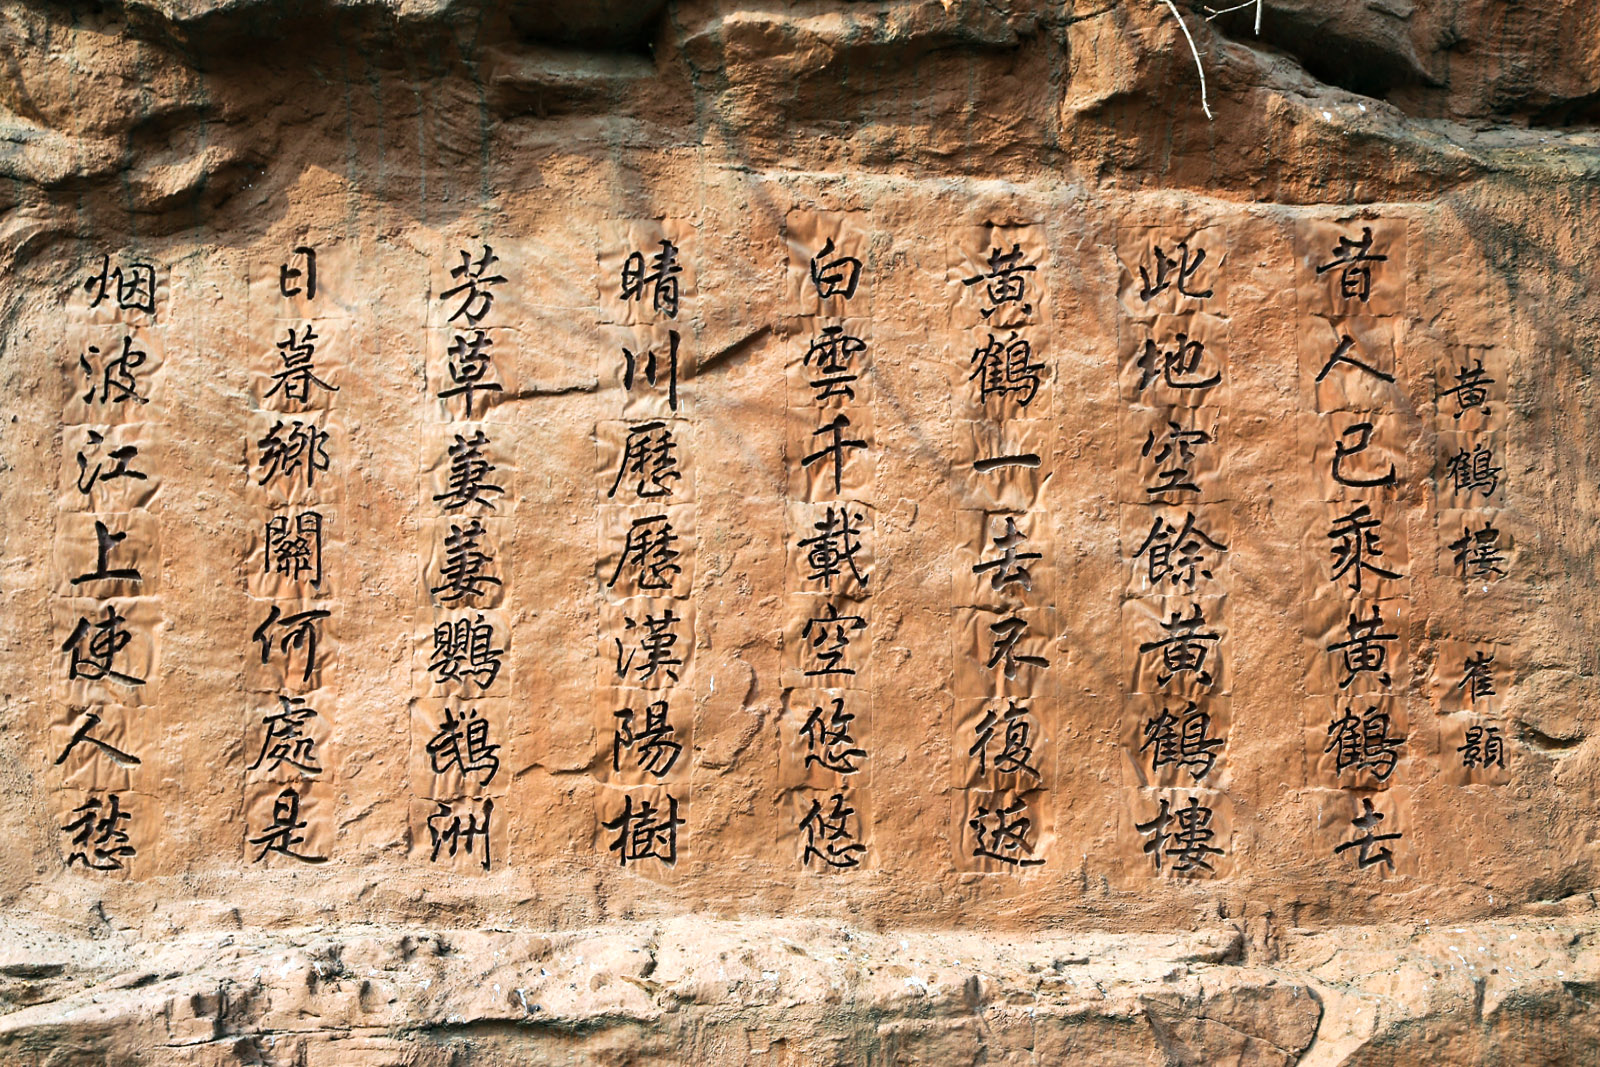 黃鶴樓 崔顥
昔人已乘黃鶴去
此地空餘黃鶴樓
黃鶴一去不復返
白雲千載空悠悠
晴川歷歷漢陽樹
芳草萋萋鸚鵡洲
日暮鄉關何處是
烟波江上使人愁